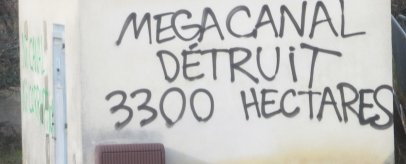 MEGACANAL
DÉTRUIT
3300 HECTARES